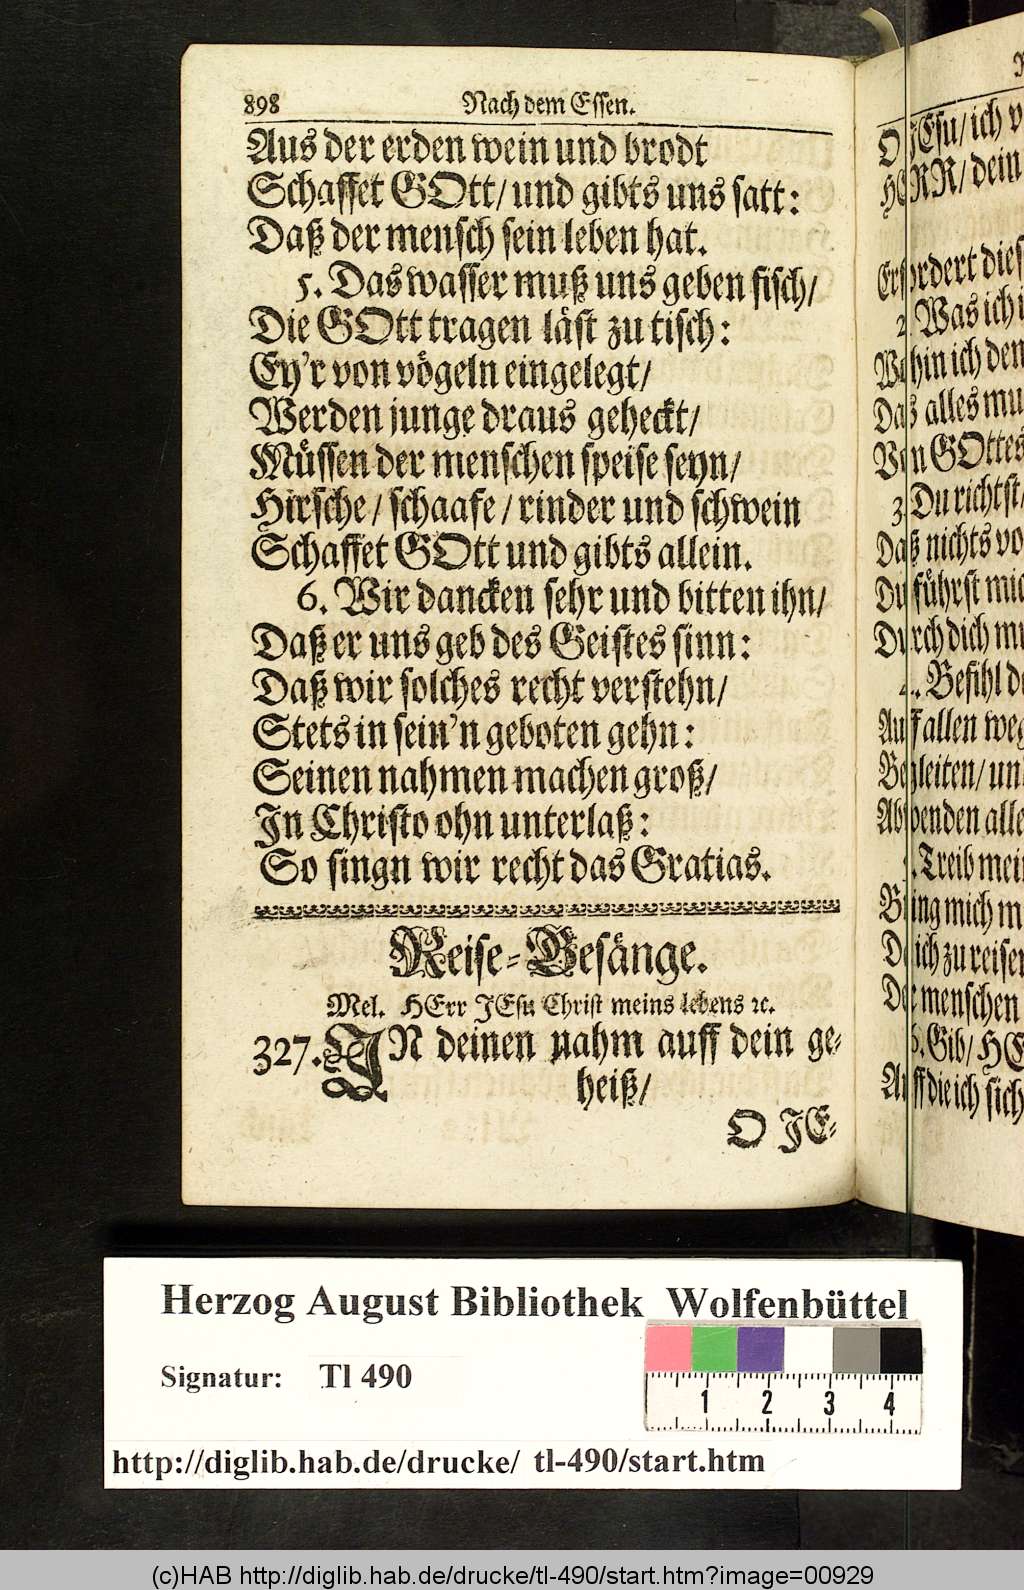 898 Nach dem Essen.
Aus der erden wein und brodt
Schaffet GOtt/ und gibts uns satt:
Daß der mensch sein leben hat.
5. Das wasser muß uns geben fisch/
Die GOtt tragen läst zu tisch:
Ey'r von vögeln eingelegt/
Werden junge draus geheckt/
Müssen der menschen speise seyn/
Hirsche/ schaafe/ rinder und schwein
Schaffet GOtt und gibts allein.
6. Wir dancken sehr und bitten ihn/
Daß er uns geb des Geistes sinn:
Daß wir solches recht verstehn/
Stets in sein'n geboten gehn:
Seinen nahmen machen groß/
In Christo ohn unterlaß:
So singn wir recht das Gratias.
Reise-Gesänge.
Mel. HErr JEsu Christ meins lebens ꝛc.
327. IN deinen nahm auff dein ge-
heiß/
O JE-
O JEsu/ ich
HERR/ dein
Erfordert
2. Was ich
Wohin ich
Das alles
Von GOttes
3. Du richtst
Daß nichts
Du führst
Durch dich
4. Befihl
Auff allen
Begleiten/
Abwenden
Treib
Bring mich
Da ich zu
Der menschen
6. Gib/
Auff die ich
Herzog August Bibliothek Wolfenbüttel
Signatur: Tl 490
1 2 3 4
http://diglib.hab.de/drucke/ tl-490/start.htm
(c)HAB http://diglib.hab.de/drucke/tl-490/start.htm?image=00929